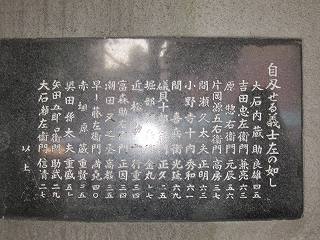 自刃せる義士左の如し
大石内蔵助良雄四五
吉田忠左衛門兼亮六三
原惣右衛門元辰五六
片岡源五右衛門高房三七
間瀬久太夫正明六三
小野寺十内秀和六一
間喜兵衛光延六九
礒貝十郎左衛門正久二五
堀部弥兵衛金丸七七
近松勘六行重三四
富森助右衛門正因三四
潮田又之丞高教三五
早水藤左衛門満尭四〇
赤埴源蔵重賢三五
奥田孫太夫重盛五七
矢田五郎右衛門助武二九
大石瀬左衛門信清二七
以上